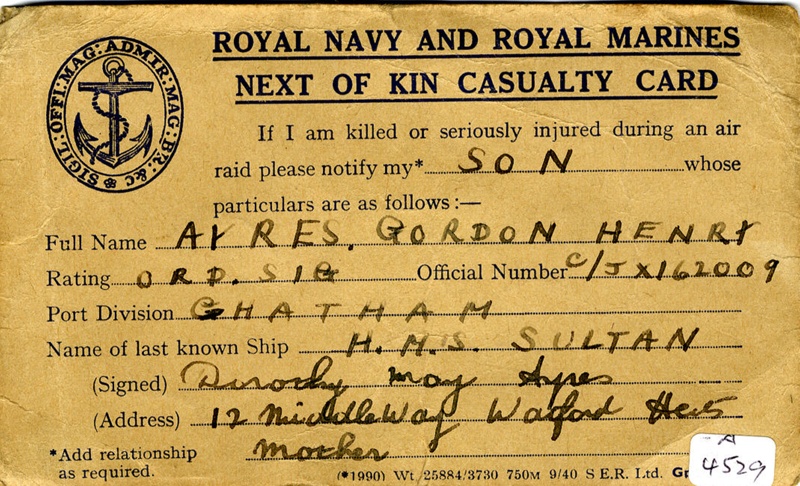 SIGIL: OFFI: MAG: ADMIR: MAG: BR: &c
ROYAL NAVY AND ROYAL MARINES
NEXT OF KIN CASUALTY CARD
If I am killed or seriously injured during an air
raid please notify my* SON whose
particulars are as follows :—
Full Name AYRES, GORDON HENRY
Rating ORD. SIG Official Number C/JX162009
Port Division CHATHAM
Name of last known Ship H.M.S. SULTAN
(Signed) Dorothy May Ayres
(Address) 12 Middle Way Watford Herts
Mother
*Add relationship
as required.
(*1990) Wt. 25884/3730 750M 9/40 S.E.R. Ltd.
A
4529